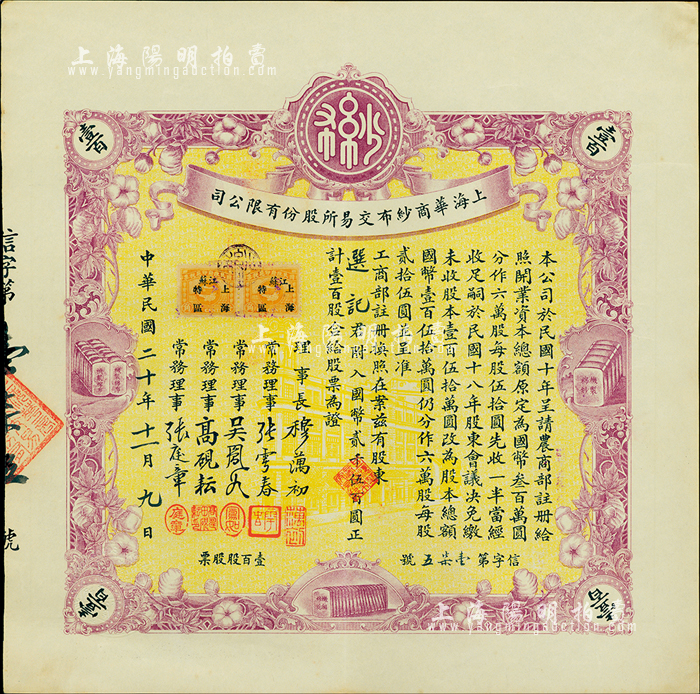 上海陽明拍賣
www.yangmingauction.com
紗布
壹百
壹百
上海華商紗布交易所股份有限公司
本公司於民國十年呈請農商部註册給
照開業資本總額原定為國幣叁百萬圓
分作六萬股每股伍拾圓先收一半當經
收足嗣於民國十八年股東會議決免繳
未收股本壹百伍拾萬圓改為股本總額
國幣壹百伍拾萬圓仍分作六萬股每股
貳拾伍圓呈准
工商部註册換照在案兹有股東
選記君附入國幣貳千伍百圓正
計壹百股合給股票為證
理事長 穆藕初
常務理事 張霱春
常務理事 吳
常務理事 高硯耘
常務理事 張廷章
中華民國二十年十二月九日
江蘇
上海
特區
江蘇
上海
特區
信字第壹柒五號
壹百股股票
信字第
號
壹百
壹百
上海陽明拍賣
www.yangmingauction.com
上海陽明拍賣
www.yangmingauction.com